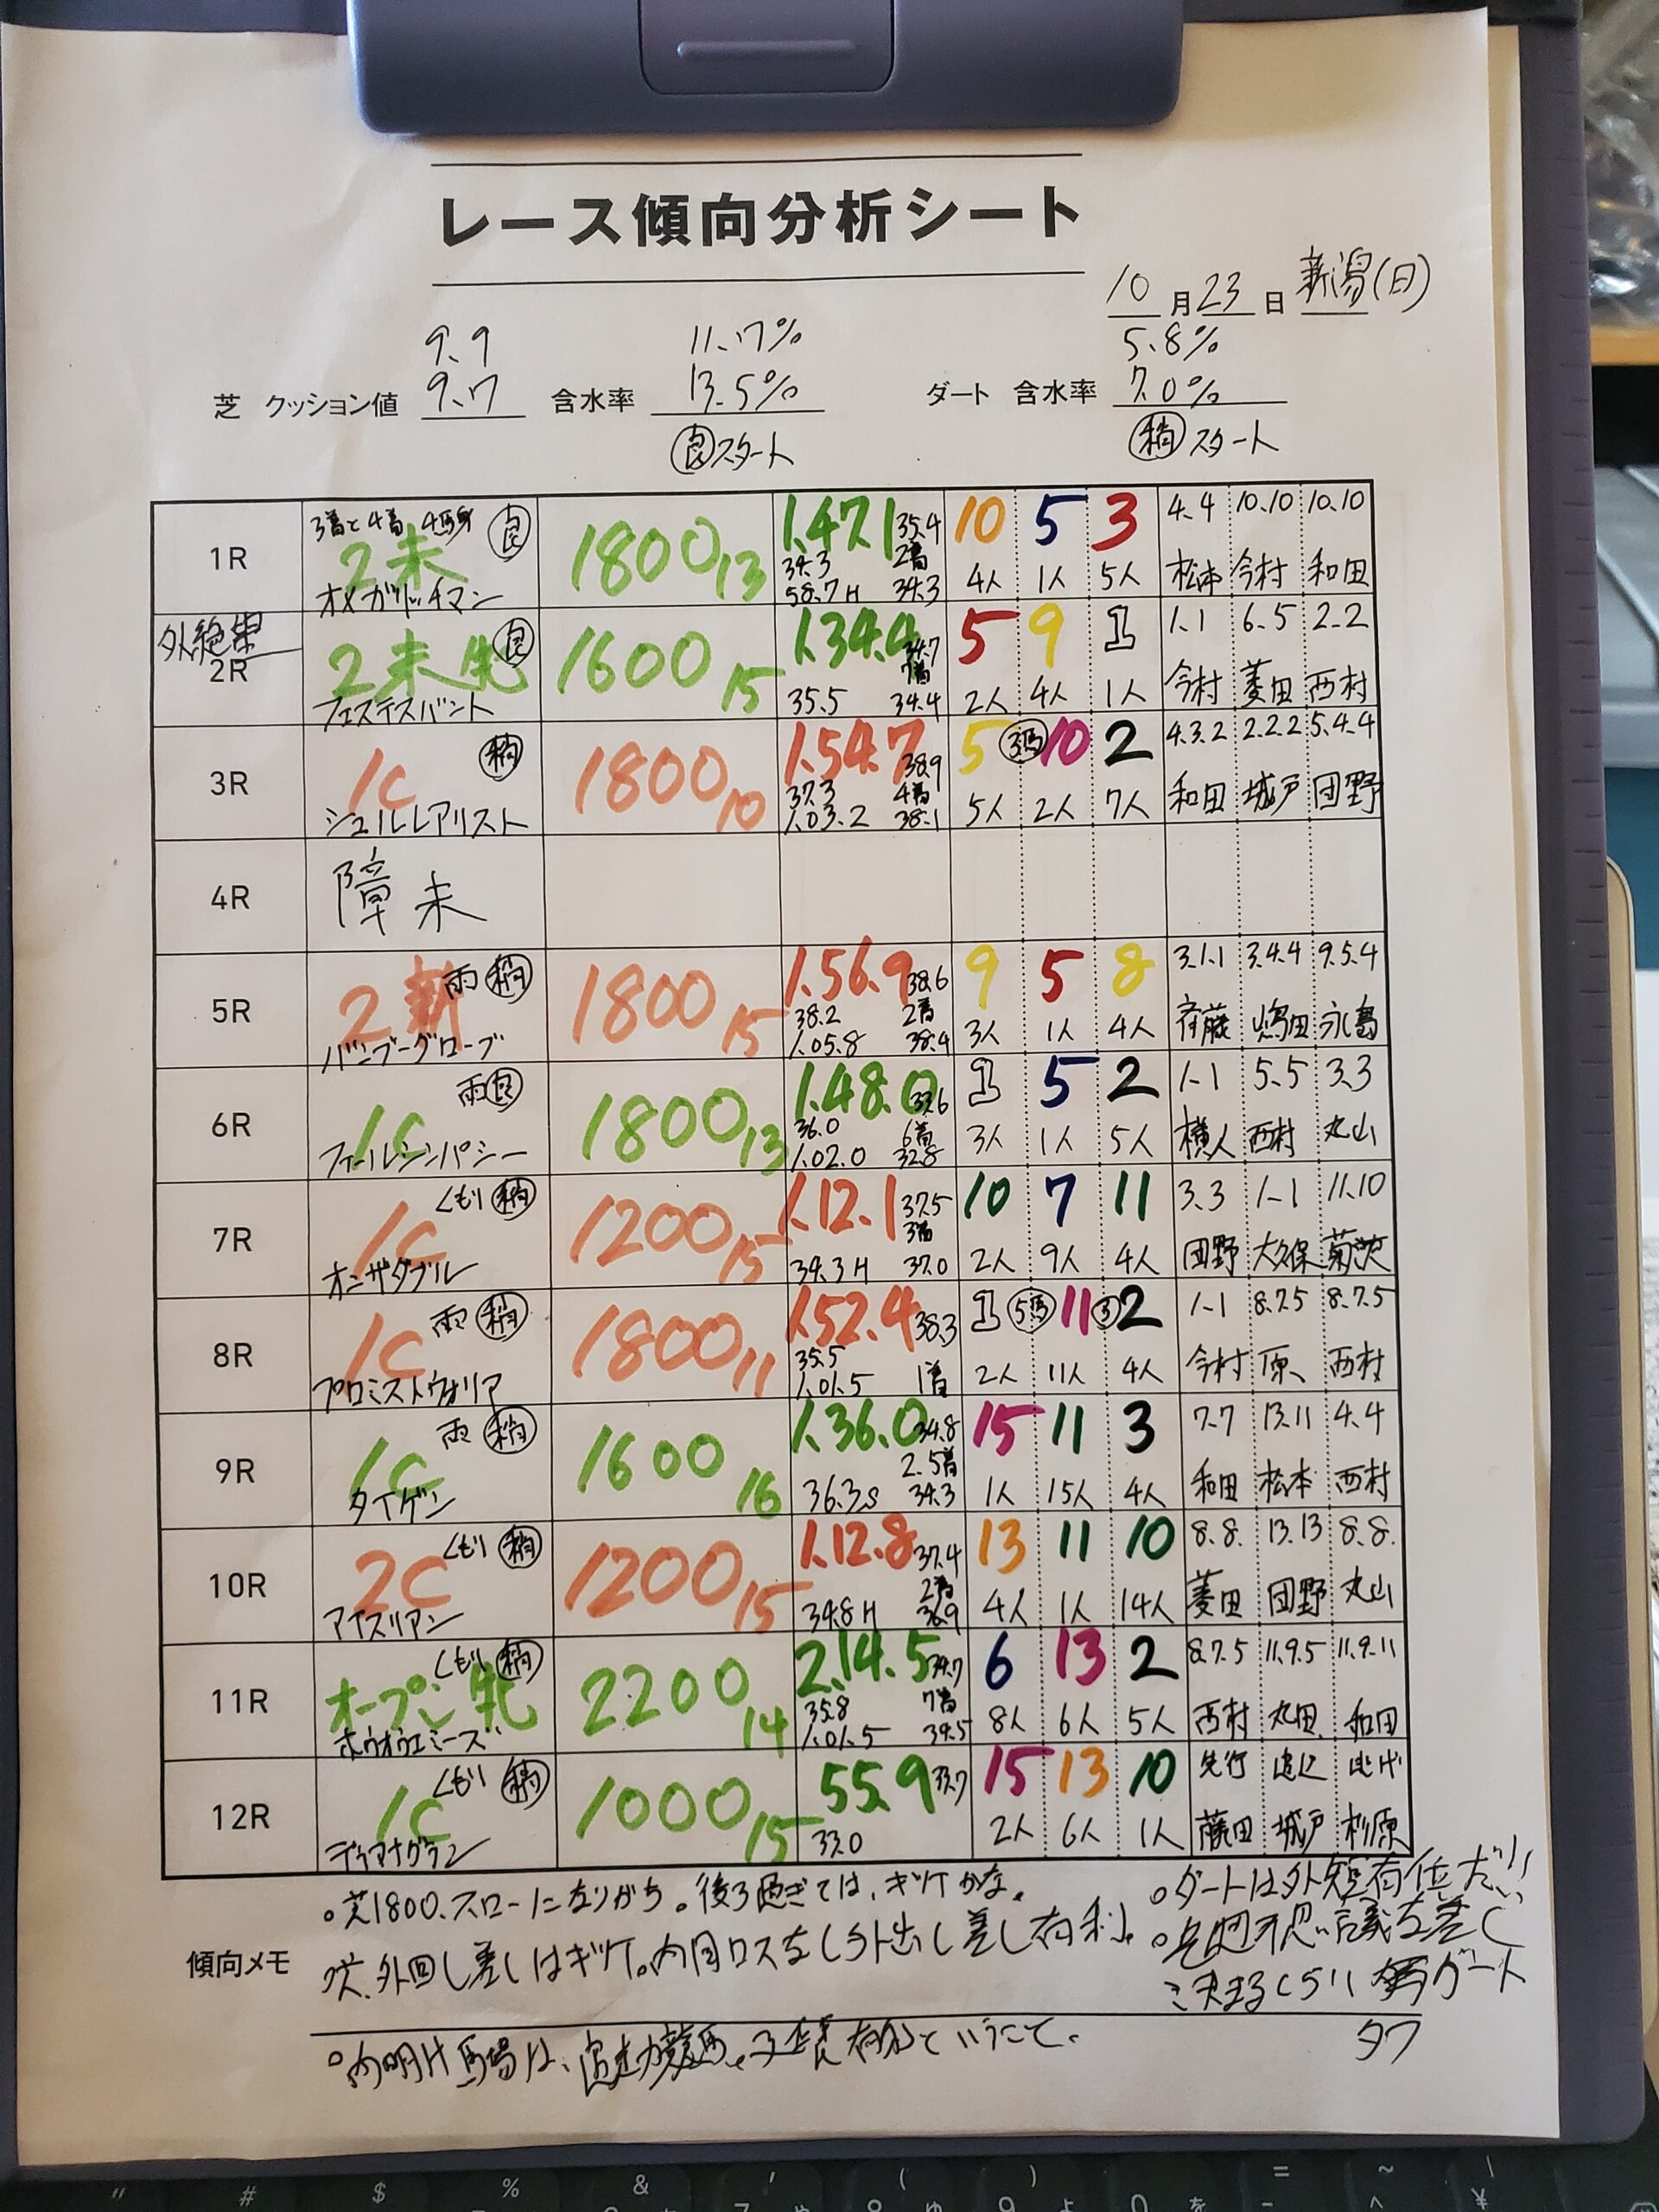 レース傾向分析シート
10月23日 新潟(日)
9.9 11.7% 5.8%
芝 クッション値 9.7 含水率 13.5% ダート 含水率 7.0%
良スタート 稍スタート
3着と4着 4馬身 良 1.47.1 35.4 10 5 3 4.4 10.10 10.10
1R 2未 1800 13 34.3 2着
オメガリッチマン 58.7H 34.3 4人 1人 5人 松本 今村 和田
外絶果 良 1.34.4 34.7 5 9 1 1.1 6.5 2.2
2R 2未牝 1600 15 7着
フェステスバント 35.5 34.4 2人 4人 1人 今村 菱田 西村
稍 1.54.7 38.9 5 3馬 10 2 4.3.2 2.2.2 5.4.4
3R 1C 1800 10 37.3 4着
シュルレアリスト 1.03.2 38.1 5人 2人 7人 和田 城戸 団野
4R 障未
雨 稍 1.56.9 38.6 9 5 8 3.1.1 3.4.4 9.5.4
5R 2新 1800 15 38.2 2着
バンブーグローブ 1.05.8 38.4 3人 1人 4人 斉藤 嶋田 永島
雨 良 1.48.0 33.6 1 5 2 1-1 5.5 3.3
6R 1C 1800 13 36.0 6着
フィールシンパシー 1.02.0 32.8 3人 1人 5人 横人 西村 丸山
くもり 稍 1.12.1 37.5 10 7 11 3.3 1-1 11.10
7R 1C 1200 15 3着
オンザダブル 34.3H 37.0 2人 9人 4人 団野 大久保 菊沢
雨 稍 1.52.4 38.3 1 5馬 11 3 2 1-1 8.7.5 8.7.5
8R 1C 1800 11 35.5
プロミストウォリア 1.01.5 1着 2人 11人 4人 今村 原 西村
雨 稍 1.36.0 34.8 15 11 3 7.7 13.11 4.4
9R 1C 1600 16 2.5着
タイゲン 36.3S 34.3 1人 15人 4人 和田 松本 西村
くもり 稍 1.12.8 37.4 13 11 10 8.8. 13.13 8.8.
10R 2C 1200 15 2着
アイスリアン 34.8H 36.9 4人 1人 14人 菱田 団野 丸山
くもり 稍 2.14.5 34.7 6 13 2 8.7.5 11.9.5 11.9.11
11R オープン牝 2200 14 35.8 7着
ホウオウエミーズ 1.01.5 34.5 8人 6人 5人 西村 丸田 和田
くもり 稍 55.9 33.7 15 13 10 先行 追込 逃げ
12R 1C 1000 15
ディマナグラン 33.0 2人 6人 1人 藤田 城戸 杉原
。芝1800、スローになりがち。後ろ過ぎては、キツイかな。
。ダートは外短有位だ!!
傾向メモ 外回し差しはキツイ。内目ロスなし外出し差し有利。
不思議な差し
決まるくらい
タフ
。内明け馬場は、
ということで。